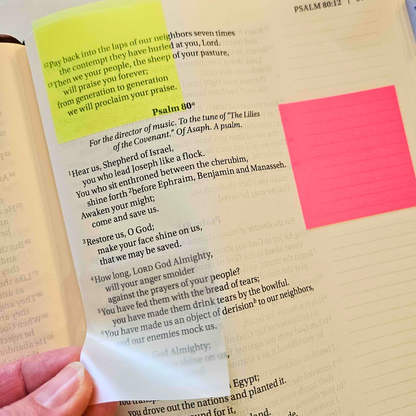 PSALM 80:12
12Pay back into the laps of our neighbors seven times
the contempt they have hurled at you, Lord.
13Then we your people, the sheep of your pasture,
will praise you forever;
from generation to generation
we will proclaim your praise.
Psalm 80a
For the director of music. To the tune of "The Lilies
of the Covenant." Of Asaph. A psalm.
1Hear us, Shepherd of Israel,
you who lead Joseph like a flock.
You who sit enthroned between the cherubim,
shine forth 2before Ephraim, Benjamin and Manasseh.
Awaken your might;
come and save us.
3Restore us, O God;
make your face shine on us,
that we may be saved.
4How long, LORD God Almighty,
will your anger smolder
against the prayers of your people?
5You have fed them with the bread of tears;
you have made them drink tears by the bowlful.
6You have made us an object of derisionb to our neighbors,
and our enemies mock us.
God Almighty;
shine on us,
Egypt;
you drove out the nations and planted it.
ground for it,
land.